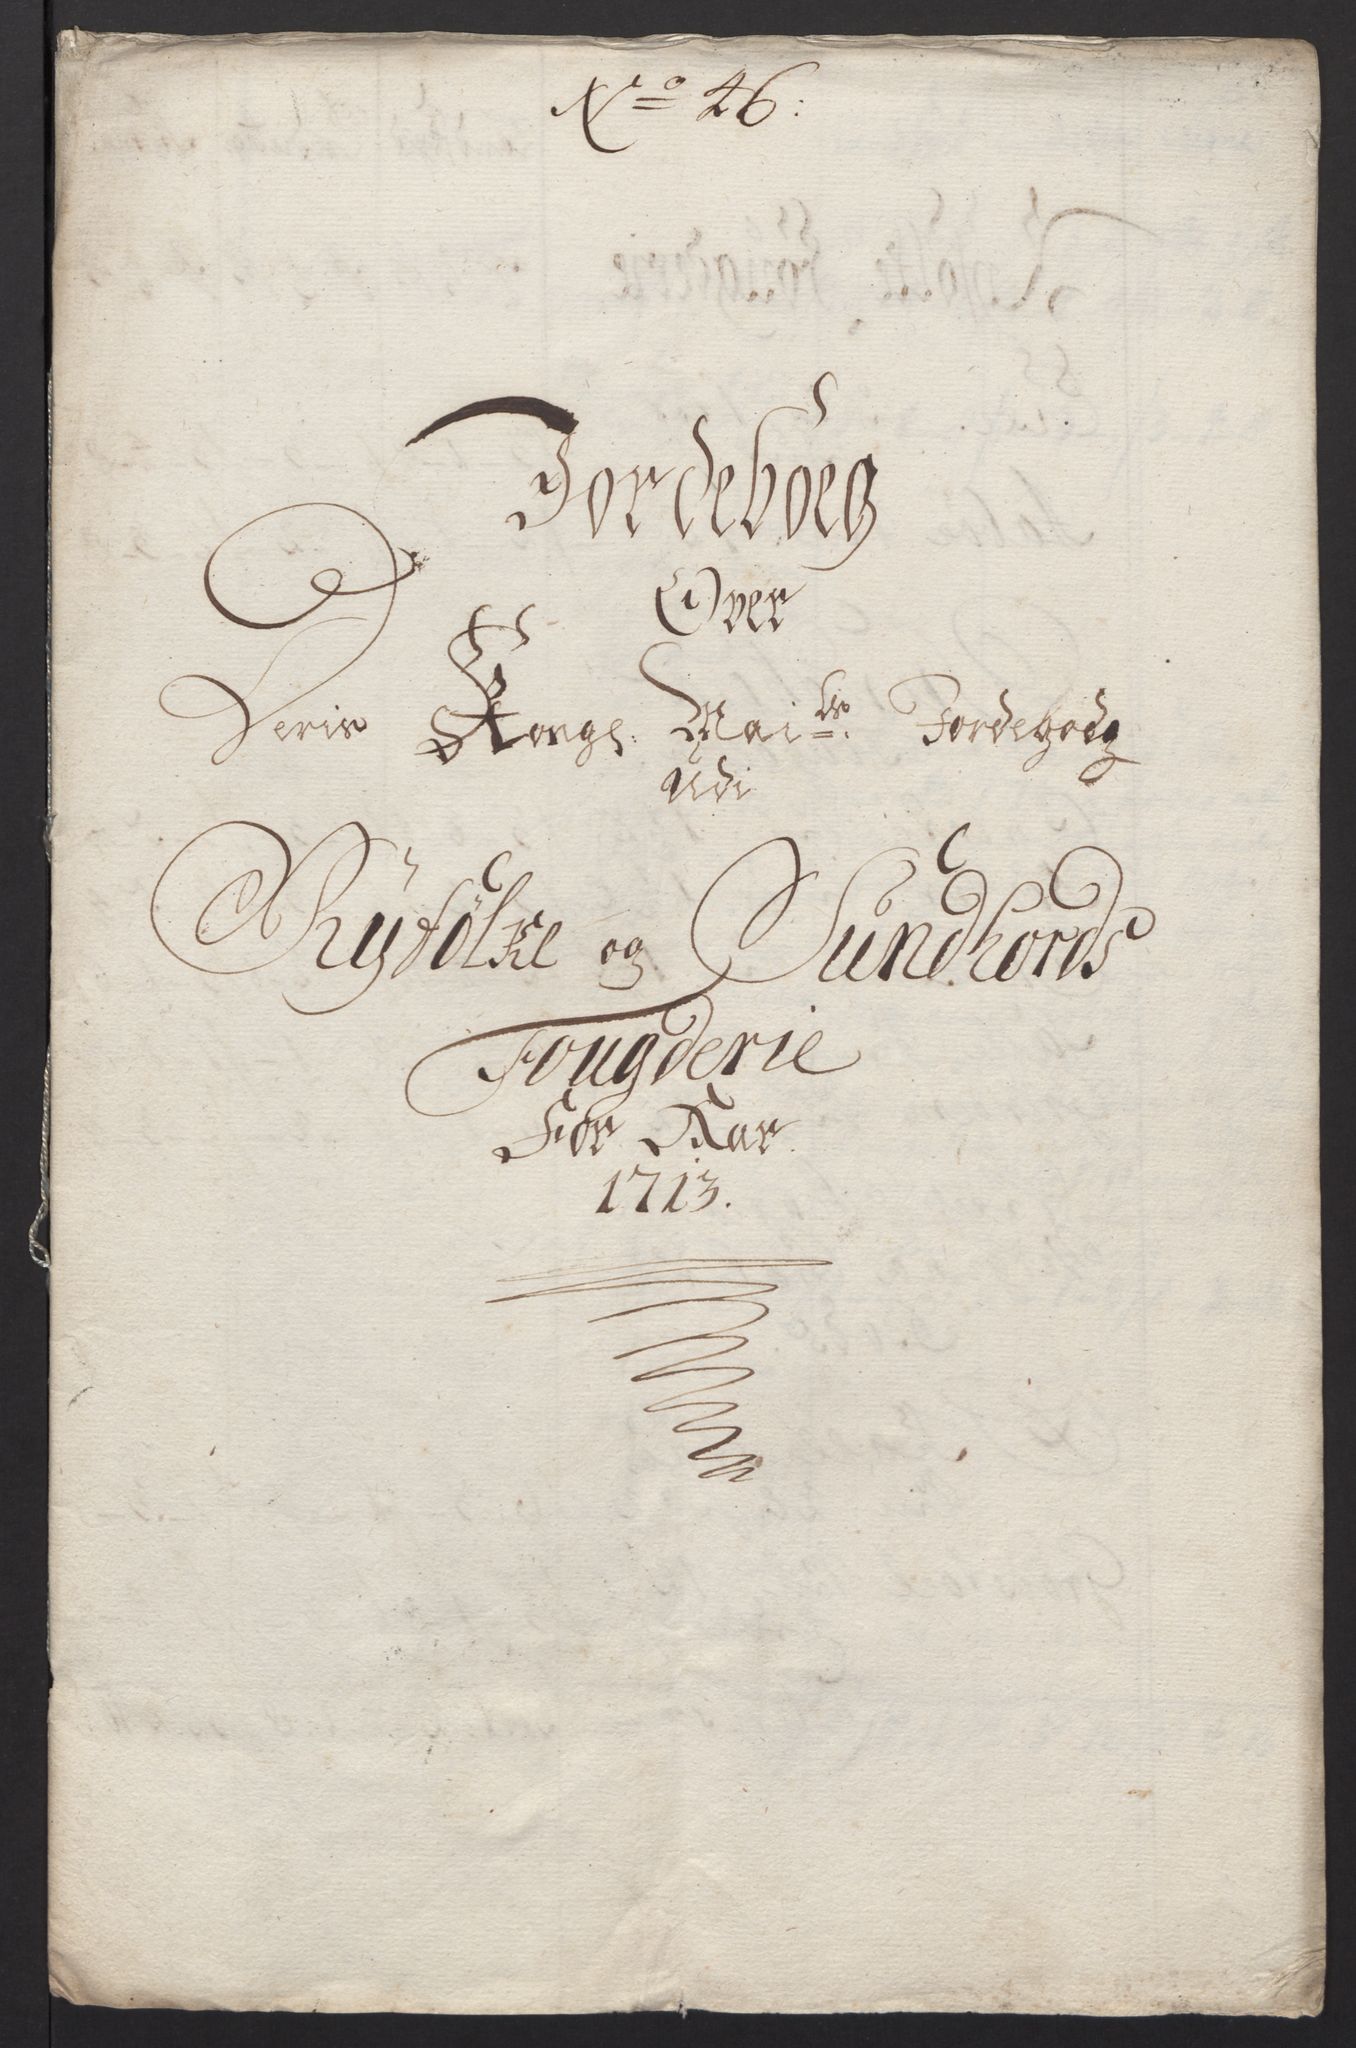 No 46:
Jordeboeg
Over
Deris Kongl: Mai.ts Jordegods
udi
Ryfölke og Sundhords
Fougderie
For Aar
1713.